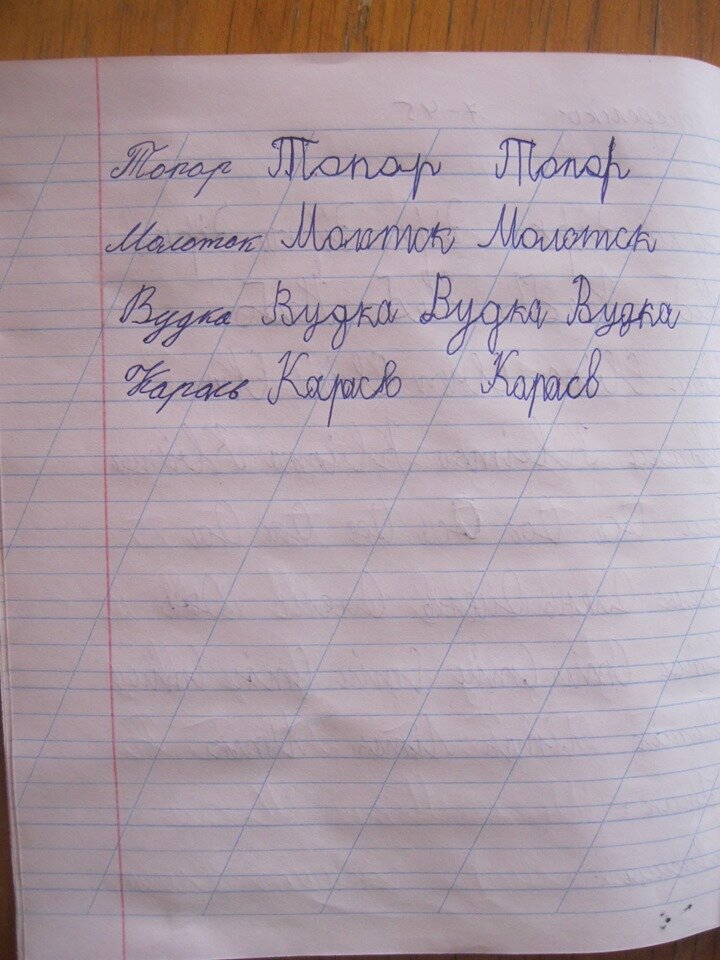 Топор Топор Топор
Молоток Молоток Молоток
Вудка Вудка Вудка Вудка
Карась Карась Карась